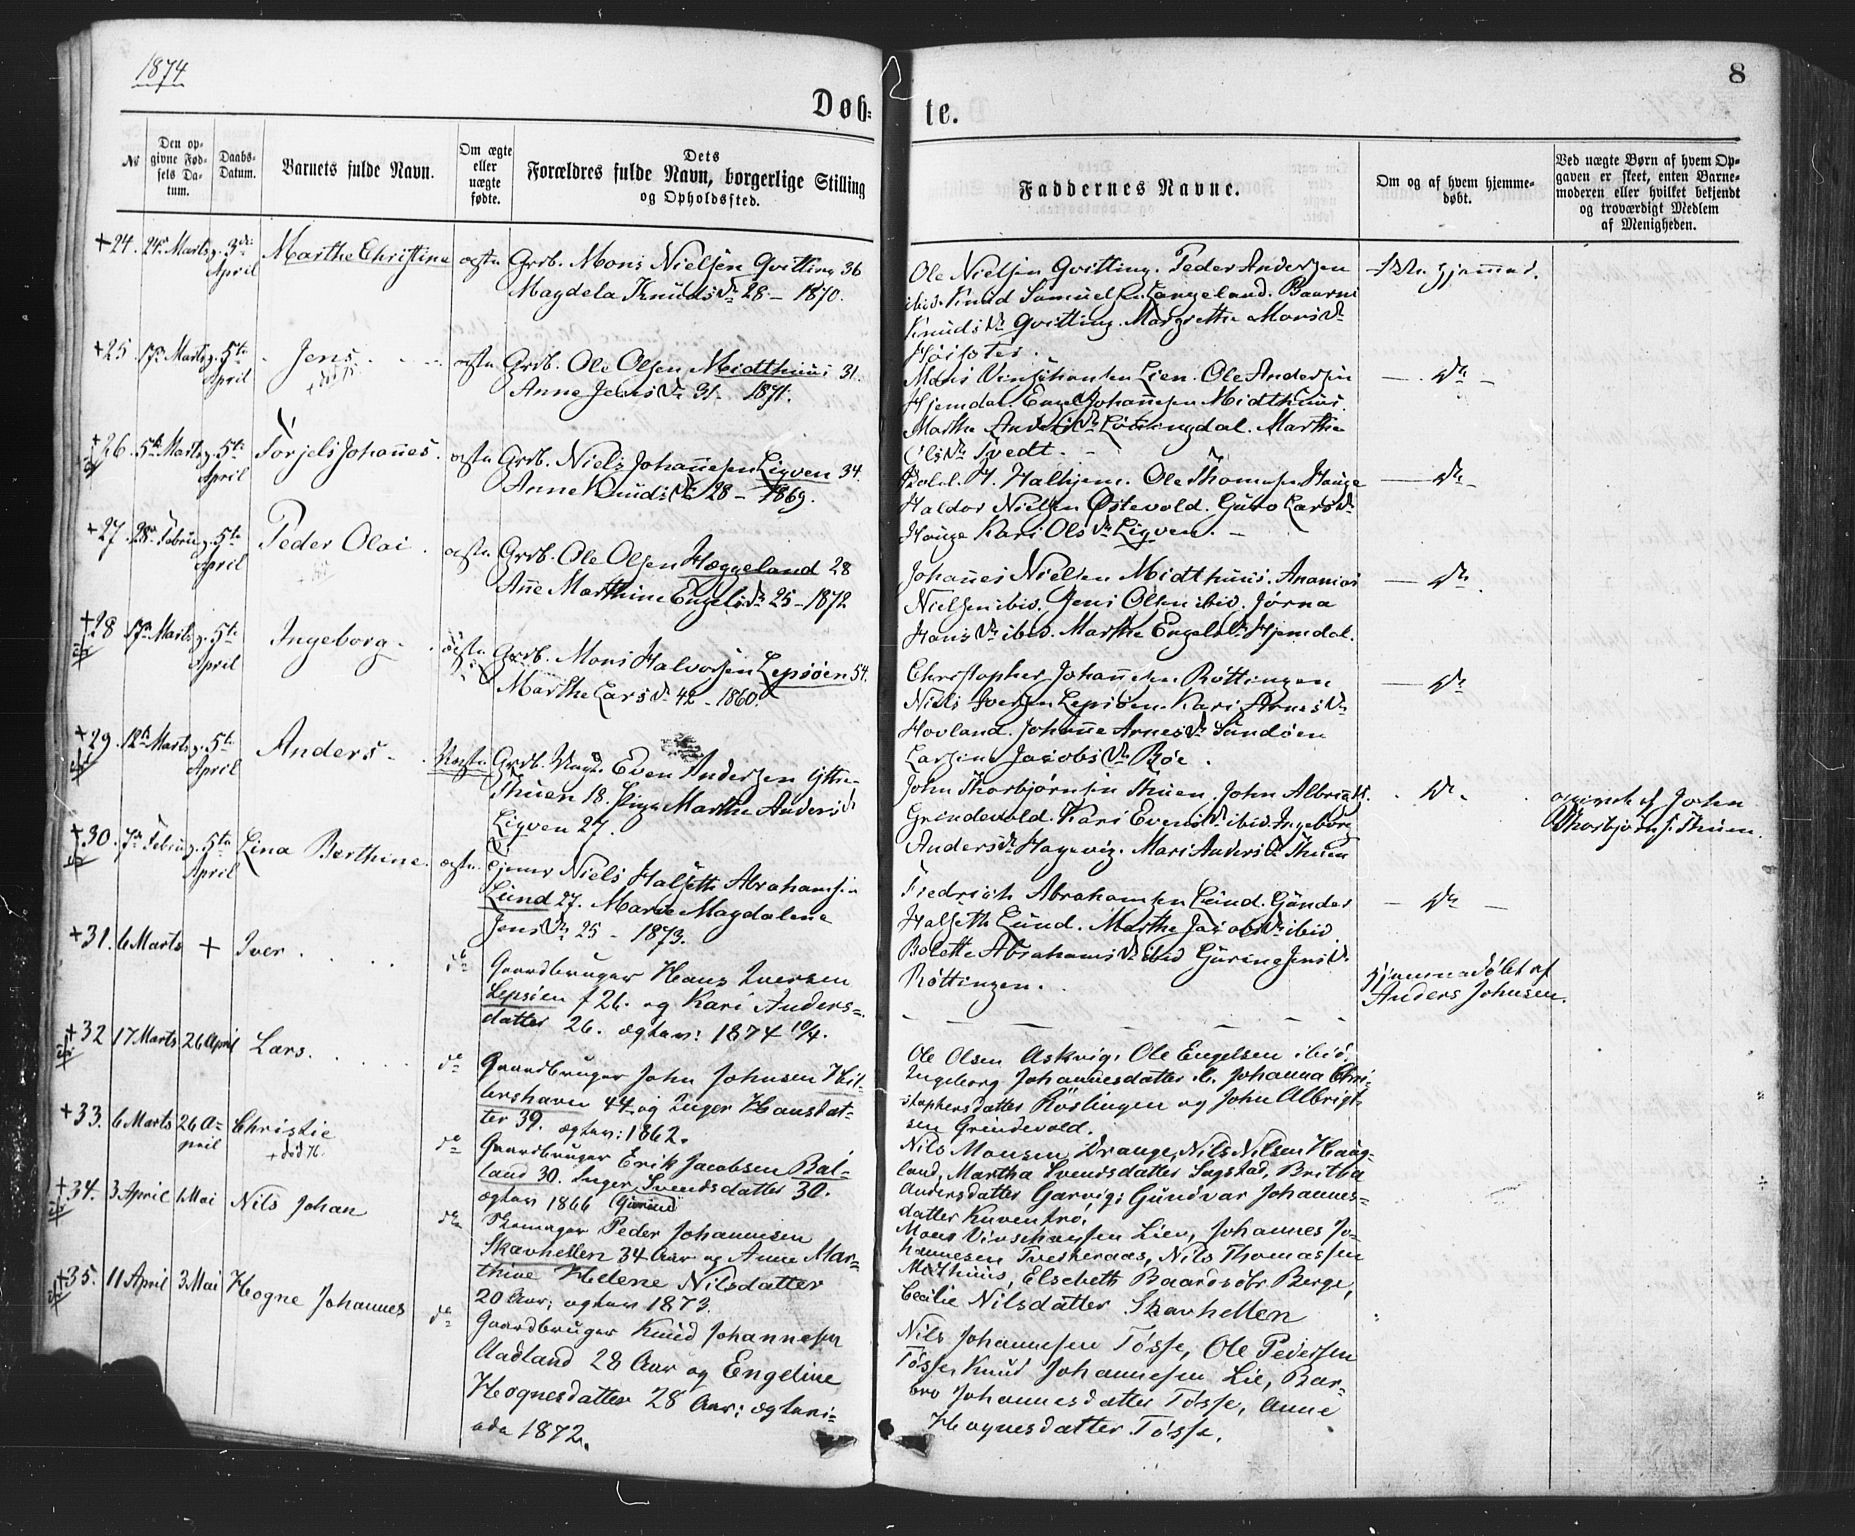 1874
8
Døb-
te.
№
Den op-
givne Fød-
sels Da-
tum.
Daabs-
Datum.
Barnets fulde Navn.
Om ægte
eller
uægte
fødte.
Dets
Forældres fulde Navn, borgerlige Stilling
og Opholdssted.
Faddernes Navne.
Om og af hvem hjemme-
døbt.
Ved uægte Børn af hvem Op-
gaven er skeet, enten Barne-
moderen eller hvilket bekjendt
og troværdigt Medlem
af Menigheden.
+24.
24de Marts
3die
April
Marthe Christine
ægte
Grb. Mons Nielsen Gvitting 36
Magdela Knudsdr 28 - 1870.
Ole Nielsen Gvitting. Peder Andersen
ibid. Knud Samuels. Langeland. Baarni
Knudsdr Gvitting. Margrethe Monsdr
+25
17de Marts
5te
April
Jens
+
ægte
Grb. Ole Olsen Midthuus 31.
Anne Jensdr 31 - 1871.
Mons Vinshansen Lien. Ole Andersen
Hjemdal Engel Johannesen Midthuus.
Marthe Andersdr Lønningdal. Marthe
Olsdr Tvedt. -
- do -
+26
5te Marts
5te
April
Torjels Johannes.
ægte
Grb. Niels Johannesen Ligven 34.
Anne Knudsdr 28 - 1869.
H. Halhjem. Ole Thomesen Hauge
Haldor Nielsen Østevold. Guro Larsdr
Hauge Kari Olsdr Ligven. -
- do -
+27
28de Febru
5te
April
Peder Olai
ægte
Grb. Ole Olsen Hæggeland 28
Ane Marthine Engelsdr 25 - 1872
Johannes Nielsen Midthuus. Ananias
Nielsen ibid. Jens Olsen ibid. Jørna
Hansdr ibid. Marthe Engelsdr Hjemdal.
- do
+28
17de Marts
5te
April
Ingeborg
ægte
Grb. Mons Halvorsen Lepsøen 54.
Marthe Larsdr 42 - 1860.
Christopher Johannesen Røttingen
Niels Iversen Lepsøen. Kari Arnesdr
Hovland. Johanne Arnesdr Sundøen
Larsine Jacobsdr Røe.
- do
+29.
12te Marts
5te
April
Anders
Uægte
Grb. Even Andersen Ytre-
Thuen 18. Pige Marthe Andersdr
Ligven 27.
John Thorbjørnsen Thuen. John Albrigts.
Grindevold. Kari Evensdr ibid. Ingeborg
Andersdr Hagevig. Mari Andersdr Thuen
do
af John
Thorbjørns. Thuen.
+30.
7de Febru
5te
April
Lina Berthine.
ægte
Niels Halseth Abrahamsen
Lund 27. Marie Magdalene
Jensdr 25 - 1873.
Fredrich Abrahamsen Lund. Gunder
Halseth Lund. Marthe Jacobsdr ibid
Bolette Abrahamsdr ibid Gurine Jensdr
Røttingen.
- do -
+31.
6 Marts
+
Iver
do
Gaardbruger Hans Iversen
Lepsøen f 26. og Kari Anders-
datter 26. ægtev: 1874 10/4.
hjemmedøbt af
Anders Johnsen.
+32
17 Marts
26 April
Lars.
do
Gaardbruger John Johnsen Hil-
lershavn 44 og Inger Hansdat-
ter 39. ægtev: 1862.
Ole Olsen Askvig, Ole Engelsen ibid,
Ingeborg Johannesdatter ib. Johanna Chri-
stophersdatter Röttingen og John Albrigt-
sen Grindevold.
+33.
6 Marts
26 A-
pril
Christie
+ død 76.
do
Gaardbruger Erik Jacobsen Bal-
land 30. Inger Svendsdatter 30.
ægtev 1866
Nils Monsen Drange, Nils Nilsen Haug-
land, Martha Svendsdatter Sugstad, Britha
Andersdatter Garvig; Gundvar Johannes-
datter Kuventrø.
+34.
3 April
1 Mai
Nils Johan
do
Skomager Peder Johannesen
Skavhellen 34 Aar og Anne Mar-
thine Helene Nilsdatter
20 Aar; ægtev 1873.
Mons Vinshansen Lien, Johannes Jo-
hannesen Tveiteraas, Nils Thomassen
Midthuus, Elsebeth Baardsdtr Berge,
Cecilie Nilsdatter Skavhellen
+35.
11 April
3 Mai
Hogne Johannes
do
Gaardbruger Knud Johannesen
Aadland 28 Aar og Engeline
Hognesdatter 28 Aar; ægtevi-
ede 1872.
Nils Johannesen Tøsse, Ole Pedersen
Tøsse, Knud Johannesen Lie, Bar-
bro Johannesdatter Tøsse, Anne
Hognesdatter Tøsse.